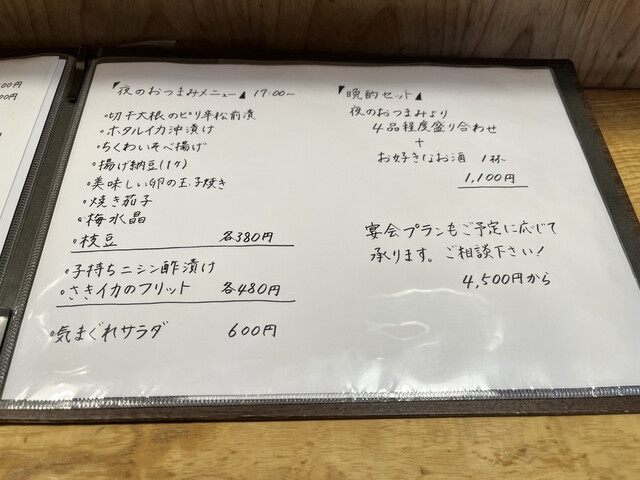 00円
00円
夜のおつまみメニュー 17:00~
・切干大根のピリ辛松前漬
・ホタルイカ沖漬け
・ちくわいそべ揚げ
・揚げ納豆(1ケ)
・美味しい卵の玉子焼き
・焼き茄子
・梅水晶
・枝豆 各380円
・子持ちニシン酢漬け
・さきイカのフリット 各480円
・気まぐれサラダ 600円
晩酌セット
夜のおつまみより
4品程度盛り合わせ
+
お好きなお酒 1杯
1,100円
宴会プランもご予定に応じて
承ります。ご相談下さい!
4,500円から